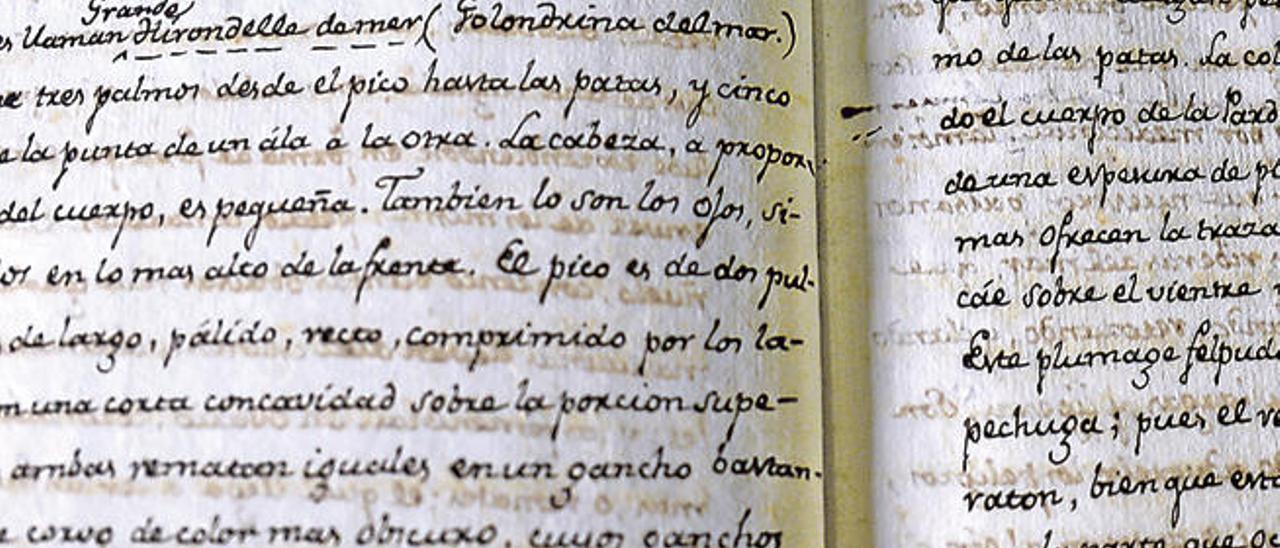 Grande
es llaman Hirondelle de mer ( Golondrina del mar.)
ne tres palmos desde el pico hasta las patas, y cinco
e la punta de un ála á la otra. La cabeza, a propor-
del cuerpo, es pequeña. Tambien lo son los ojos, si-
os en lo mas alto de la frente. El pico es de dos pul-
de largo, pálido, recto, comprimido por los la-
n una corta concavidad sobre la porcion supe-
ambas rematan iguales en un gancho bastan-
e corvo de color mas obscuro, cuyos ganchos
mo de las patas. La col
do el cuerpo de la Pard
de una espesura de p
mas ofrecen la traza
cáe sobre el vientre
Este plumage felpud
pechuga; pues el r
raton, bien que est